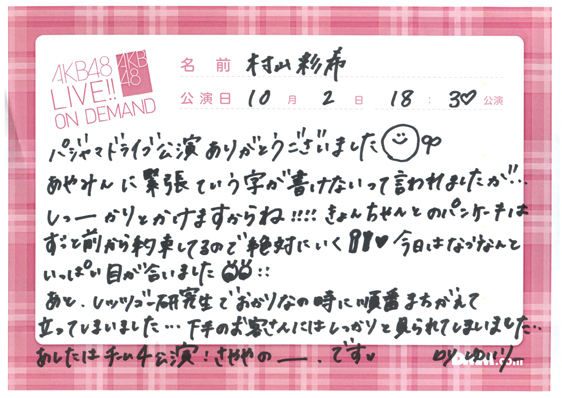 AKB48
LIVE!!
ON DEMAND
AKB
48
名前 村山彩希
公演日 10月2日 18:30公演
パジャマドライブ公演ありがとうございました
あやみんに緊張ていう字が書けないって言われましたが…
しっーかりとかけますからね!!!! きょんちゃんとのパンケーキは
ずっと前から約束してるので絶対にいく!!♥ 今日はなっなんと
いっぱい目が合いました
あと、レッツゴー研究生でおかりなの時に順番まちがえて
立ってしまいました… 下手のお客さんにはしっかりと見られてしまいました…
あしたはチーム4公演! さややの ー . です♥ by ゆいり
.com